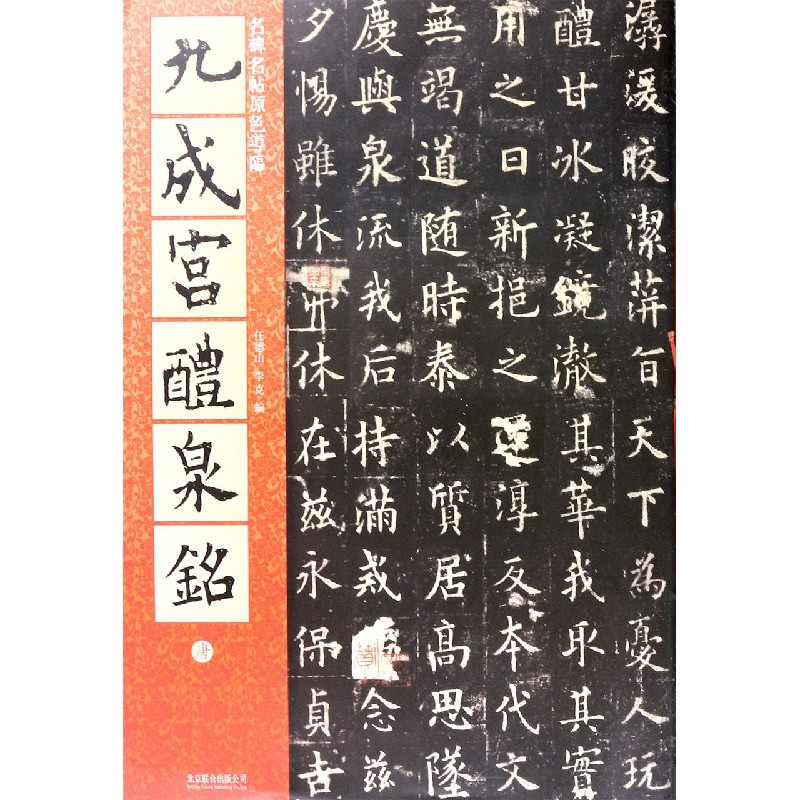 名碑名帖原色導臨
九成宮醴泉銘
任德山 李克 編
唐
北京联合出版公司
Beijing United Publishing Co.,Ltd.
潺湲皎潔蓱旨天下為憂人玩
醴甘冰凝鏡澈其華我取其實
用之日新挹之還淳反本代文
無竭道随時泰以質居高思墜
慶與泉流我后持滿戒念兹
夕惕雖休休在兹永保貞吉